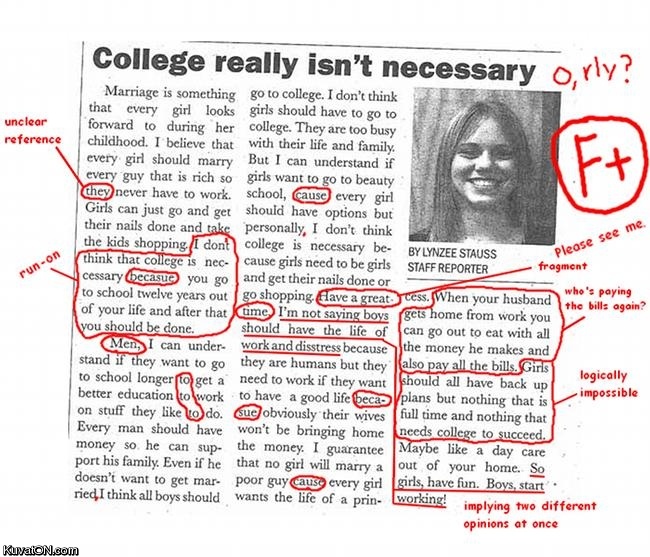 College really isn't necessary
o, rly?
F+
Please see me.
unclear
reference
run-on
Marriage is something
that every girl looks
forward to during her
childhood. I believe that
every girl should marry
every guy that is rich so
they never have to work.
Girls can just go and get
their nails done and take
the kids shopping. I don't
think that college is nec-
cessary becasue you go
to school twelve years out
of your life and after that
you should be done.
Men, I can under-
stand if they want to go
to school longer to get a
better education to work
on stuff they like to do.
Every man should have
money so he can sup-
port his family. Even if he
doesn't want to get mar-
ried,I think all boys should
go to college. I don't think
girls should have to go to
college. They are too busy
with their life and family.
But I can understand if
girls want to go to beauty
school, cause every girl
should have options but
personally, I don't think
college is necessary be-
cause girls need to be girls
and get their nails done or
go shopping. Have a great
time. I'm not saying boys
should have the life of
work and disstress because
they are humans but they
need to work if they want
to have a good life beca-
sue obviously their wives
won't be bringing home
the money. I guarantee
that no girl will marry a
poor guy cause every girl
wants the life of a prin-
BY LYNZEE STAUSS
STAFF REPORTER
fragment
cess. When your husband
gets home from work you
can go out to eat with all
the money he makes and
also pay all the bills. Girls
should all have back up
plans but nothing that is
full time and nothing that
needs college to succeed.
Maybe like a day care
out of your home. So
girls, have fun. Boys, start
working!
who's paying
the bills again?
logically
impossible
implying two different
opinions at once
KuvatON.com